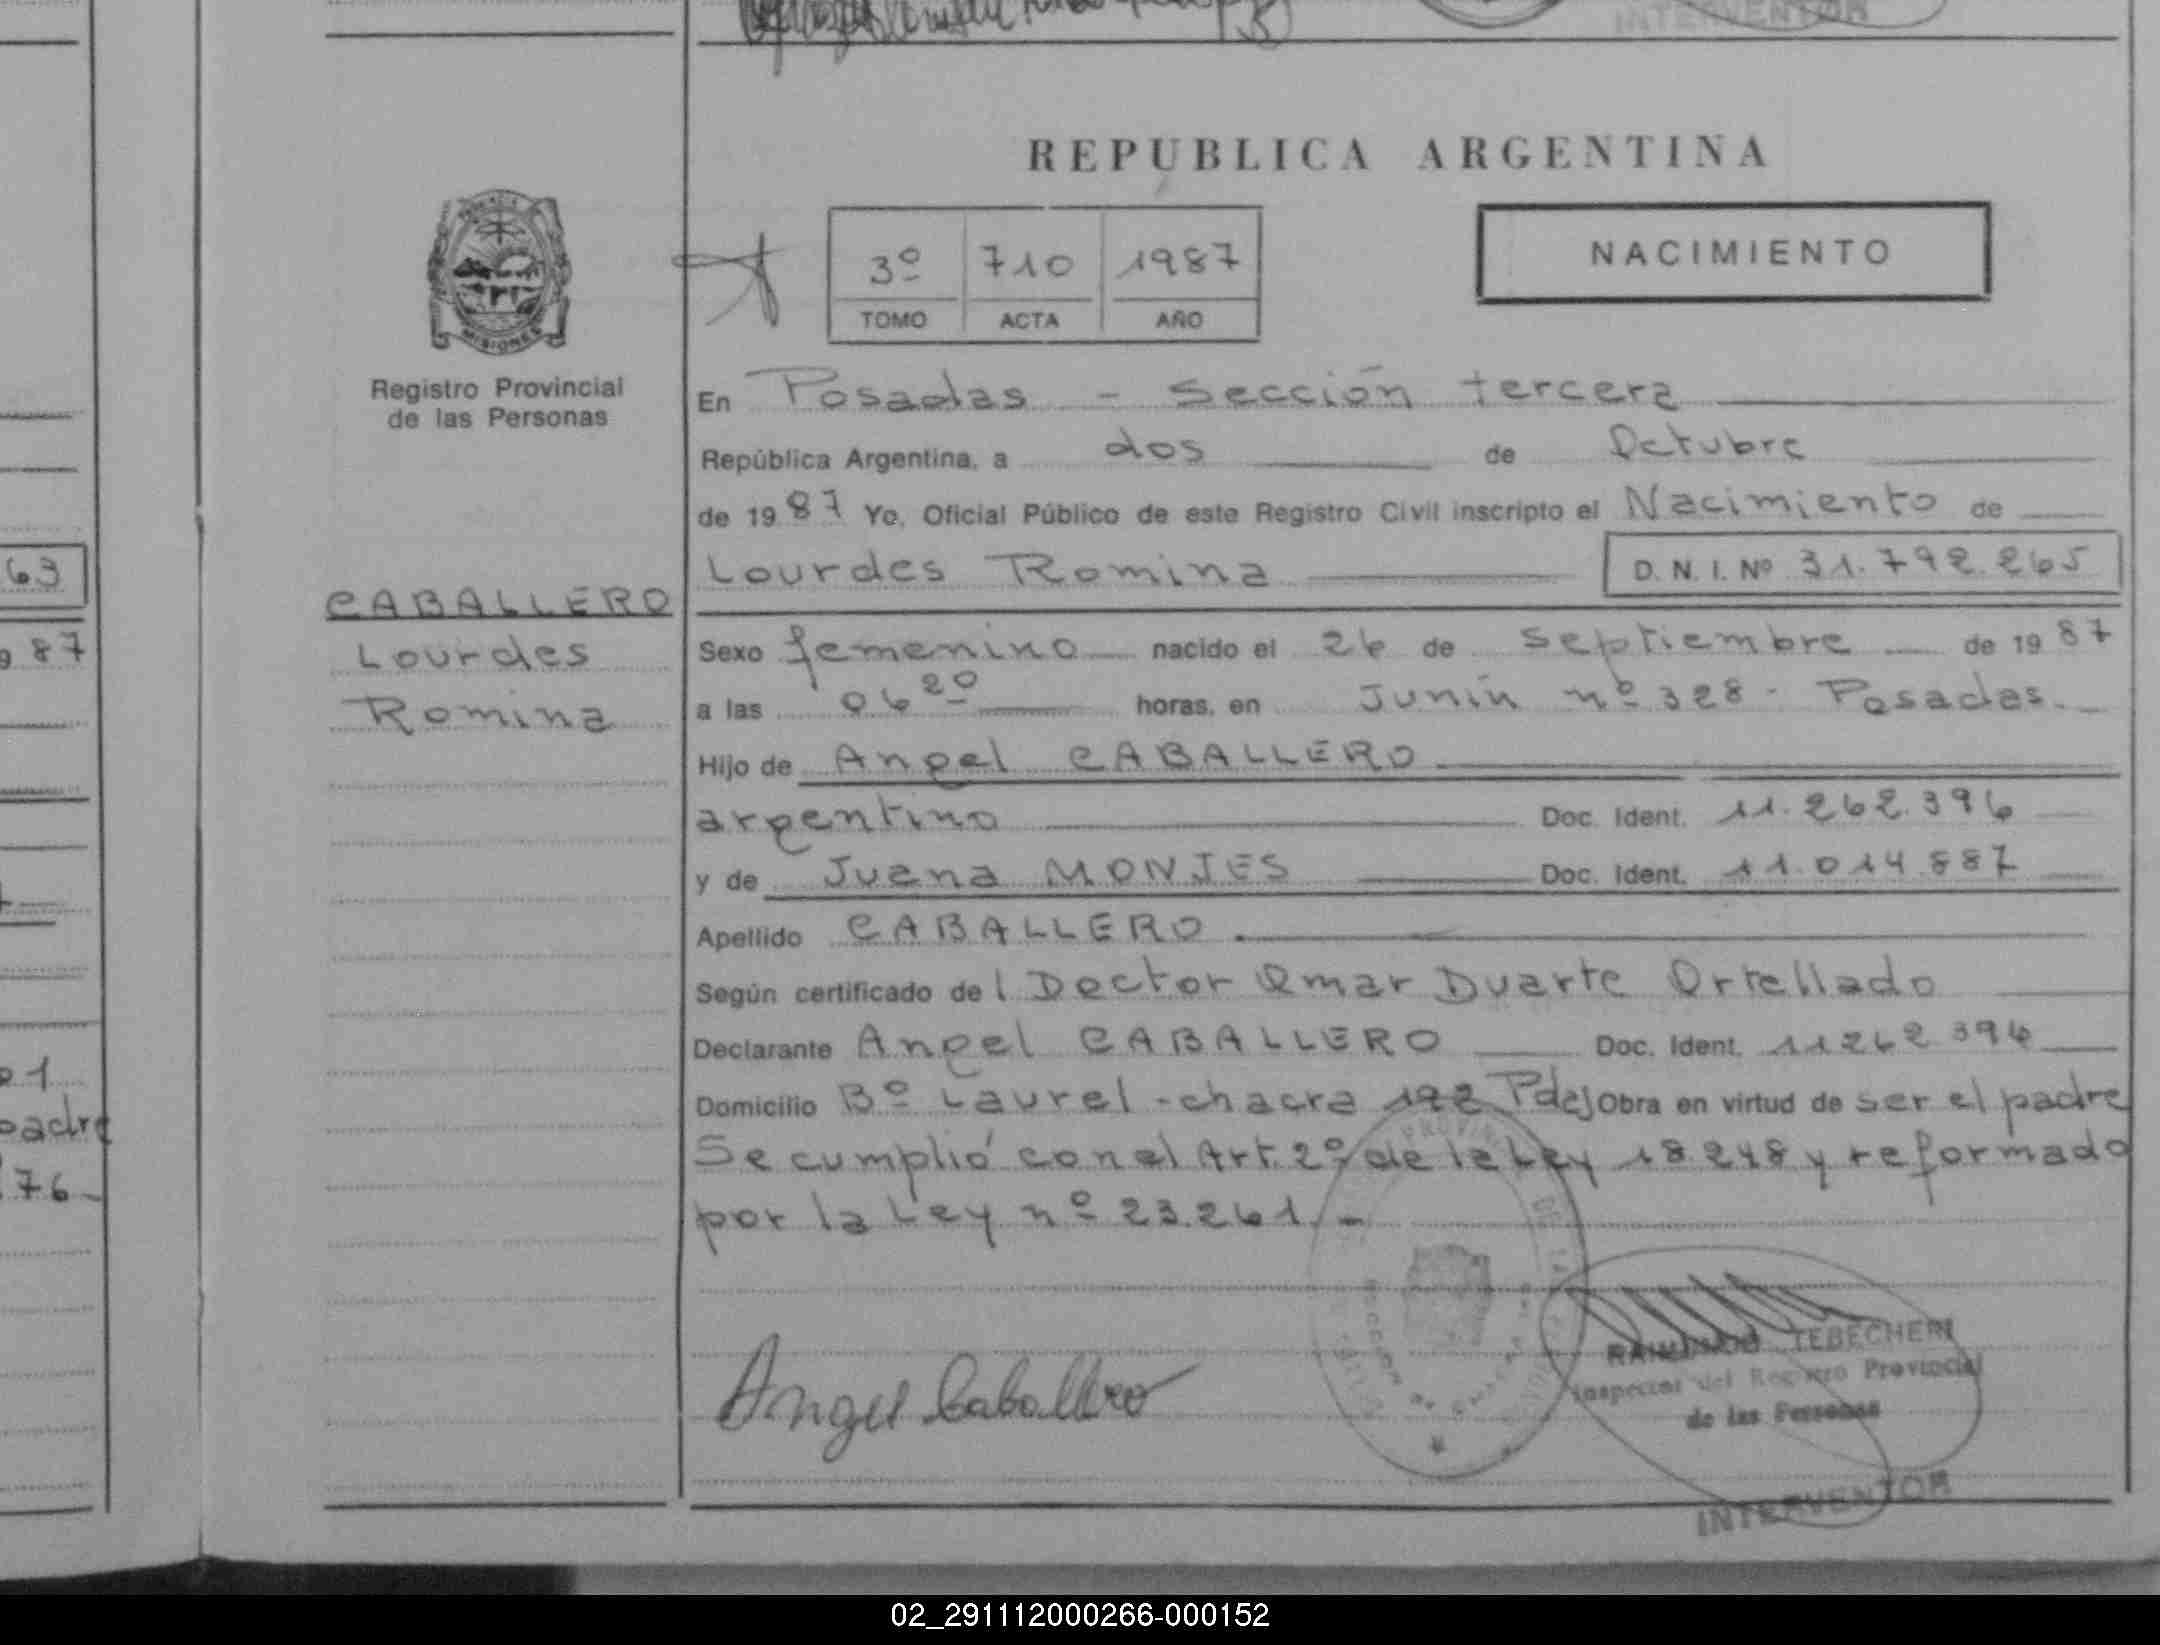 INTERVENTOR
REPUBLICA ARGENTINA
3º 710 1987
TOMO ACTA AÑO
NACIMIENTO
MISIONES
Registro Provincial
de las Personas
En Posadas - Sección tercera
República Argentina, a dos de Octubre
de 1987 Yo, Oficial Público de este Registro Civil inscripto el Nacimiento de
Lourdes Romina D. N. I. Nº 31.792.265
63
CABALLERO
Lourdes
Romina
9 87
Sexo femenino nacido el 26 de Septiembre de 1987
a las 06 20 horas, en Junín nº 328 - Posadas.
Hijo de Angel CABALLERO
argentino Doc. Ident. 11.262.396
y de Juana MONJES Doc. Ident. 11.014.887
Apellido CABALLERO.
Según certificado del Doctor Omar Duarte Ortellado
Declarante Angel CABALLERO Doc. Ident. 11262.396
Domicilio Bº Laurel - chacra 192 Pdas Obra en virtud de ser el padre
padre
Se cumplió con el Art. 2º de la Ley 18.248 y reformado
76-
por la Ley nº 23.261.-
Angel Caballero
RAIMUNDO TEBECHERI
Inspector del Registro Provincial
de las Personas
INTERVENTOR
02_291112000266-000152